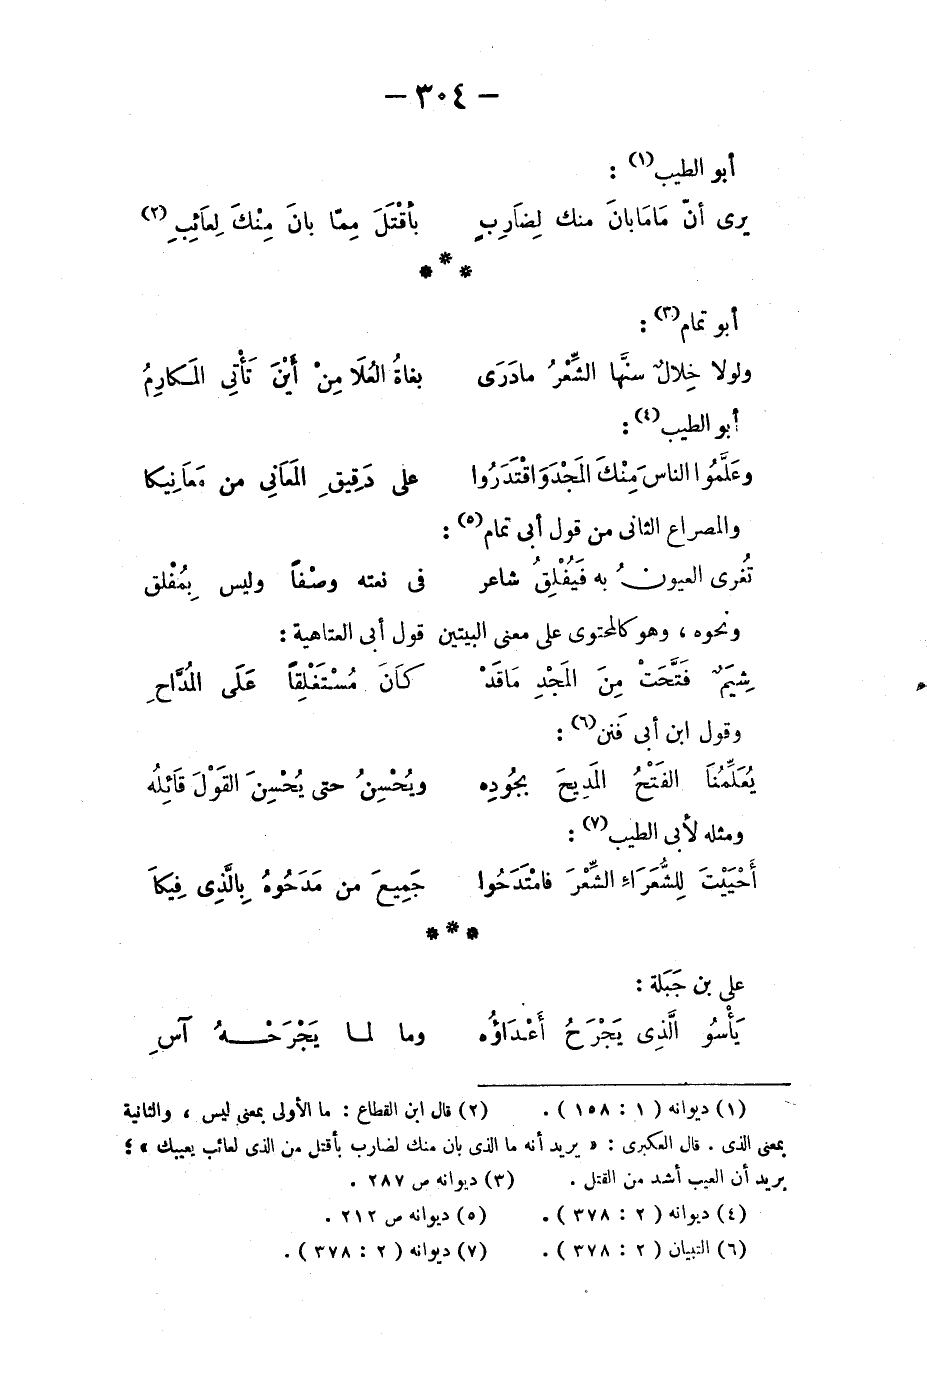 — ٣٠٤ —
أبو الطيب(١) :
يرى أنّ مَامَا بانَ منك لِضَارِبٍ بأقْتَلَ مِمّا بانَ مِنْكَ لِعَائِبِ(٢)
* * *
أبو تمام(٣) :
ولولا خِلالٌ سنَّها الشِّعْرُ مادَرَى بغاةُ العُلَا مِنْ أَيْنَ تَأْتِى المَكارِمُ
أبو الطيب(٤) :
وعَلَّمُوا الناسَ مِنْكَ المَجْدَ وَاقْتَدَرُوا على دَقِيقِ المَعَانِى من مَعَانِيكا
والمصراع الثانى من قول أبى تمام(٥) :
تُغرى العيونُ به فَيُفْلِقُ شاعر فى نعته وصْفاً وليس بِمُفْلق
ونحوه ، وهو كالمحتوى على معنى البيتين قول أبى العتاهية :
شِيَمٌ فَتَّحَتْ مِنَ المَجْدِ مَاقَدْ كَانَ مُسْتَغْلِقاً عَلَى المُدَّاحِ
وقول ابن أبى فَنن(٦) :
يُعَلِّمُنَا الفَتْحُ المَدِيحَ بجُودِه ويُحْسِنُ حتى يُحْسِنَ القَوْلَ قَائِلُه
ومثله لأبى الطيب(٧) :
أَحْيَيْتَ لِلشُّعَرَاءِ الشِّعْرَ فامْتَدَحُوا جَمِيعَ من مَدَحُوهُ بِالَّذِى فِيكَا
* * *
على بن جَبَلة :
يَأْسُو الَّذِى يَجْرَحُ أَعْدَاؤُه وما لما يَجْرَحْـهُ آسِ
(١) ديوانه ( ١ : ١٥٨ ) . (٢) قال ابن القطاع : ما الأولى بمعنى ليس ، والثانية
بمعنى الذى . قال العكبرى : « يريد أنه ما الذى بان منك لضارب بأقتل من الذى لعائب يعيبك » ؛
يريد أن العيب أشد من القتل . (٣) ديوانه ص ٢٨٧ .
(٤) ديوانه ( ٢ : ٣٧٨ ) . (٥) ديوانه ص ٢١٢ .
(٦) التبيان ( ٢ : ٣٧٨ ) . (٧) ديوانه ( ٢ : ٣٧٨ ) .